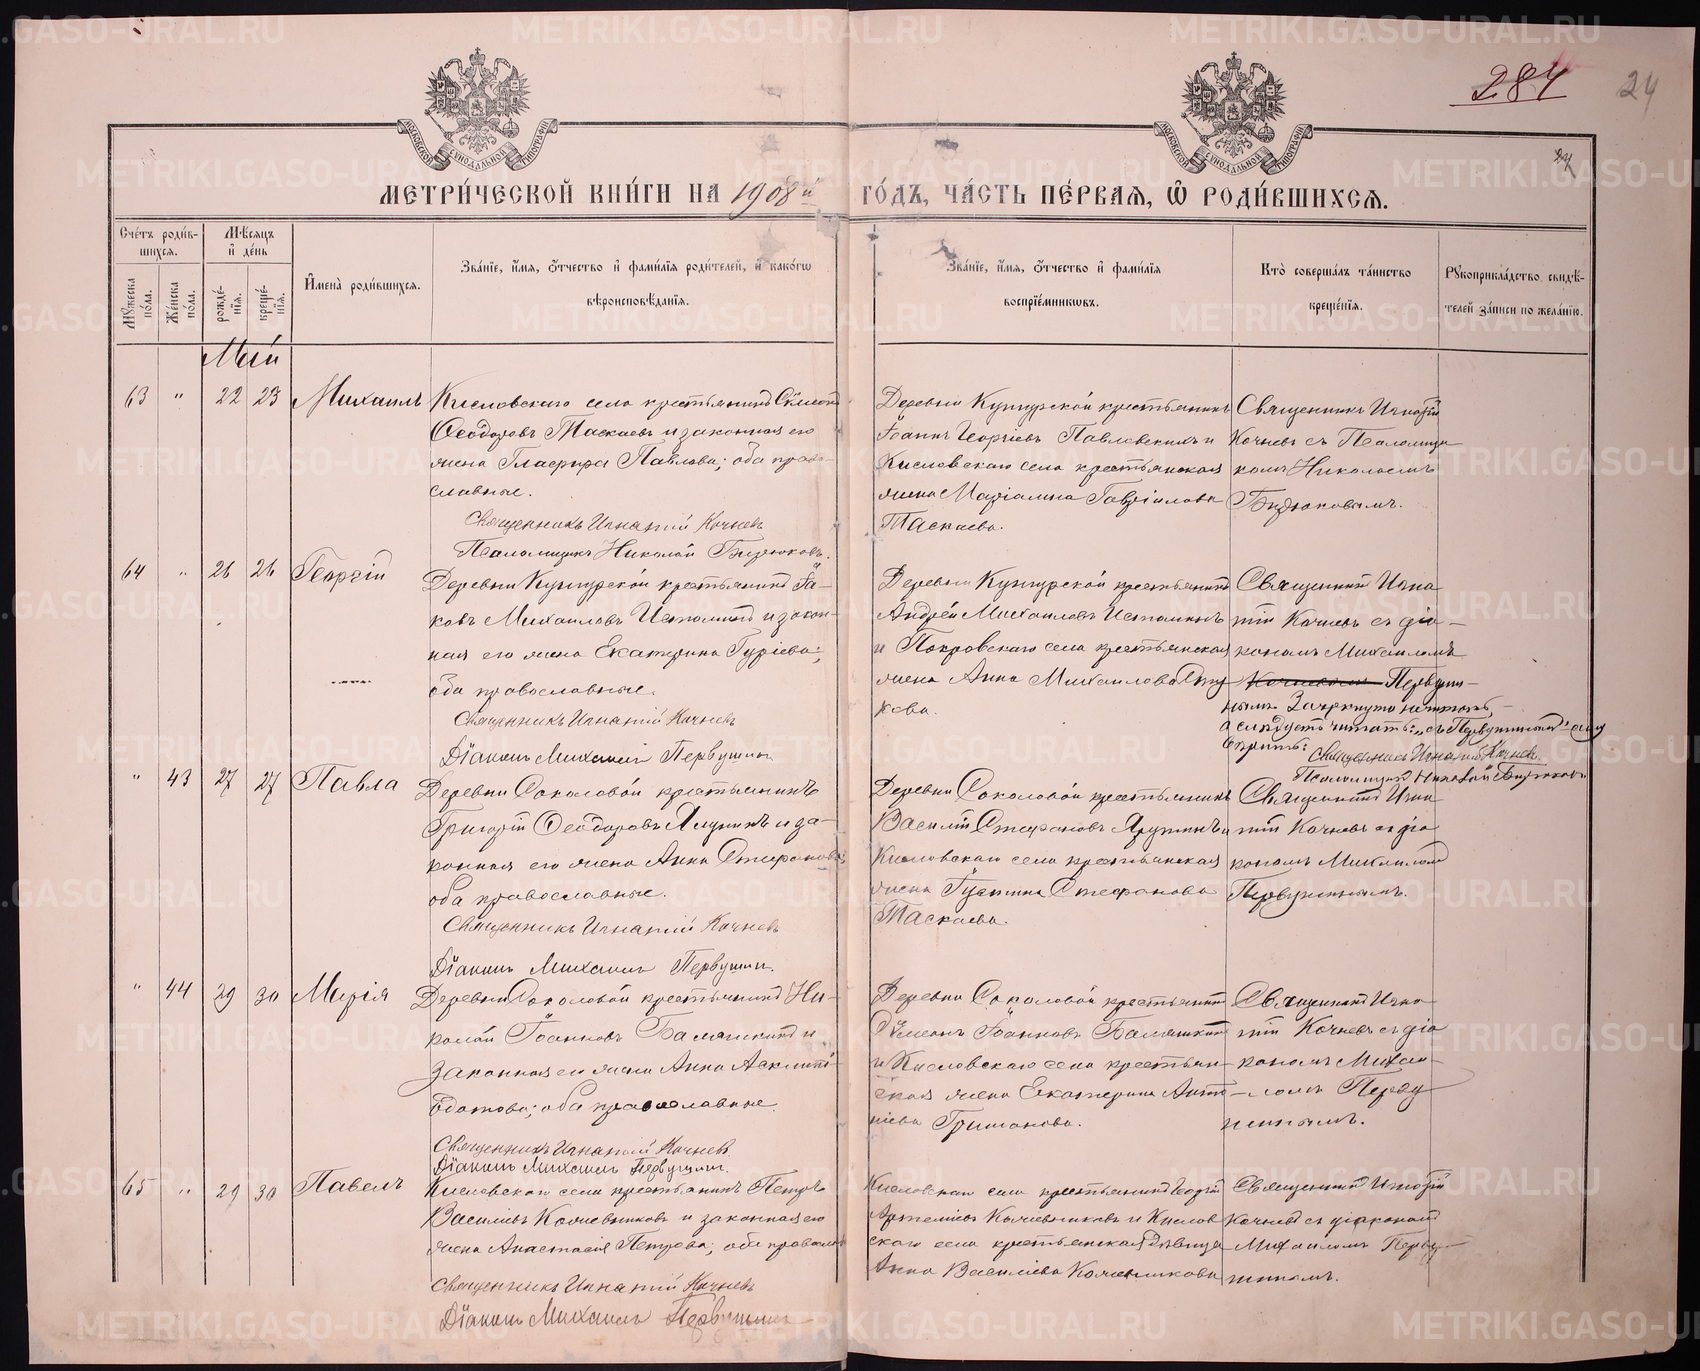 284
24
24
МОСКОВСКОЙ СѴНОДАЛЬНОЙ ТИПОГРАФІИ
МОСКОВСКОЙ СѴНОДАЛЬНОЙ ТИПОГРАФІИ
МЕТРИ́ЧЕСКОЙ КНИ́ГИ НА 1908й ГО́ДЪ, ЧА́СТЬ ПЕ́РВАЯ, Ѽ РОДИ́ВШИХСЯ.
Сче́тъ роди́в-
шихся.
Му́жеска по́ла.
Же́нска по́ла.
Мѣ́сяцъ
и де́нь
рожде́-
нїя.
креще́-
нїя.
Имена̀ роди́вшихся.
Зва́нїе, и́мя, о́тчество и фами́лїя роди́телей, и како́гѡ
вѣроисповѣ́данїя.
Зва́нїе, и́мя, о́тчество и фами́лїя
воспрїе́мникѡвъ.
Кто̀ соверша́лъ та́инство
креще́нїя.
Рꙋкоприкла́дство свидѣ́-
телей за́писи по жела́нїю.
Май
63 " 22 23 Михаилъ
Кисловскаго села крестьянинъ Сѵмеонъ
Ѳеодоровъ Таскаевъ и законная его
жена Глафира Павлова; оба право-
славные.
Священникъ Игнатій Кочневъ
Псаломщикъ Николай Бирюковъ.
Деревни Кунгурской крестьянинъ
Іоаннъ Георгіевъ Павловскихъ и
Кисловскаго села крестьянская
жена Маріамна Гавріилова
Таскаева.
Священникъ Игнатій
Кочневъ съ Псаломщи
комъ Николаемъ
Бирюковымъ.
64 " 26 26 Георгій
Деревни Кунгурской крестьянинъ Іа-
ковъ Михаиловъ Истоминъ и закон-
ная его жена Екатерина Гуріева;
оба православные.
Священникъ Игнатій Кочневъ
Діаконъ Михаилъ Первушинъ
Деревни Кунгурской крестьянинъ
Андрей Михаиловъ Истоминъ
и Покровскаго села крестьянская
жена Анна Михаилова
кова.
Священникъ Игна
тій Кочневъ съ діа-
кономъ Михаиломъ
Кочневымъ Первуши-
нымъ. Зачеркнуто
а слѣдуетъ читать: „съ Первушинымъ"
Священникъ Игнатій Кочневъ.
Псаломщикъ Николай Бирюковъ
" 43 27 27 Павла
Деревни Соколовой крестьянинъ
Григорій Ѳеодоровъ Ялунинъ и за-
конная его жена Анна Стефанова;
оба православные.
Священникъ Игнатій Кочневъ
Діаконъ Михаилъ Первушинъ.
Деревни Соколовой крестьянинъ
Василій Стефановъ и
Кисловскаго села крестьянская
жена Іустина Стефанова
Таскаева.
Священникъ Игна
тій Кочневъ съ діа
кономъ Михаиломъ
Первушинымъ.
" 44 29 30 Марія
Деревни Соколовой крестьянинъ Ни-
колай Іоанновъ Балашкинъ и
законная его жена Анна Асклипі-
одотова; оба православные.
Священникъ Игнатій Кочневъ.
Діаконъ Михаилъ Первушинъ.
Деревни Соколовой крестьянинъ
Сѵмеонъ Іоанновъ Балашкинъ
и Кисловскаго села крестьян-
ская жена Екатерина
Священникъ Игна
тій Кочневъ съ діа
кономъ Михаи-
ломъ Перву
шинымъ.
65 " 29 30 Павелъ
Кисловскаго села крестьянинъ Петръ
Василіевъ Колчевниковъ и законная его
жена Анастасія Петрова; оба православ
Священникъ Игнатій Кочневъ
Діаконъ Михаилъ Первушинъ
Кисловскаго села крестьянинъ Георгій
Артеміевъ и Кислов
скаго села крестьянская дѣвица
Анна Василіева
Священникъ Игнатій
Кочневъ съ діакономъ
Михаиломъ Перву-
шинымъ.
METRIKI.GASO-URAL.RU